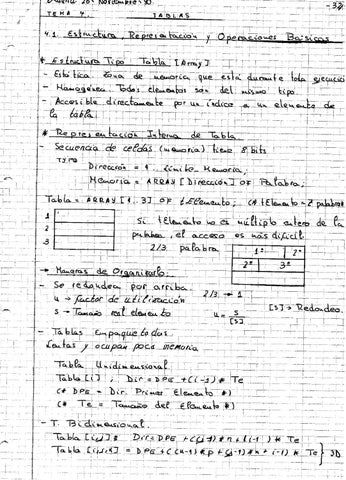 20 - Noviembre - 90
TEMA 4. TABLAS
4.1 Estructura, Representación y Operaciones Básicas
* Estructura Tipo Tabla [Array]
- Estática zona de memoria que esta durante toda ejecución
- Homogénea Todos elementos son del mismo tipo.
- Accesible directamente por un índice a un elemento de
la tabla.
* Representación Interna de Tabla
- Secuencia de celdas (memoria) tiene 8 bits
TYPE
Dirección = 1.. Límite Memoria;
Memoria = ARRAY [Dirección] OF Palabra;
Tabla = ARRAY [1..3] OF tElemento; (* tElemento - 2 palabras
1
2
3
Si tElemento no es múltiplo entero de la
palabra, el acceso es más difícil
2/3 palabra
1º 2º
2º 3º
→ Maneras de Organizarlo.
- Se redondea por arriba.
u → factor de utilización 2/3 → 1
s → Tamaño real elemento u = s/[s] [s] → Redondeo.
- Tablas empaquetadas
Lentas y ocupan poca memoria
Tabla Unidimensional
Tabla [i] , Dir = DPE + (i-1) * Te
(* DPE = Dir. Primer Elemento *)
(* Te = Tamaño del Elemento *)
- T. Bidimensional.
Tabla [i,j] Dir = DPE + ((j-1)*n + i-1) * Te
= DPE + ((k-1)*p + (j-1)*n + i-1) * Te } 3D